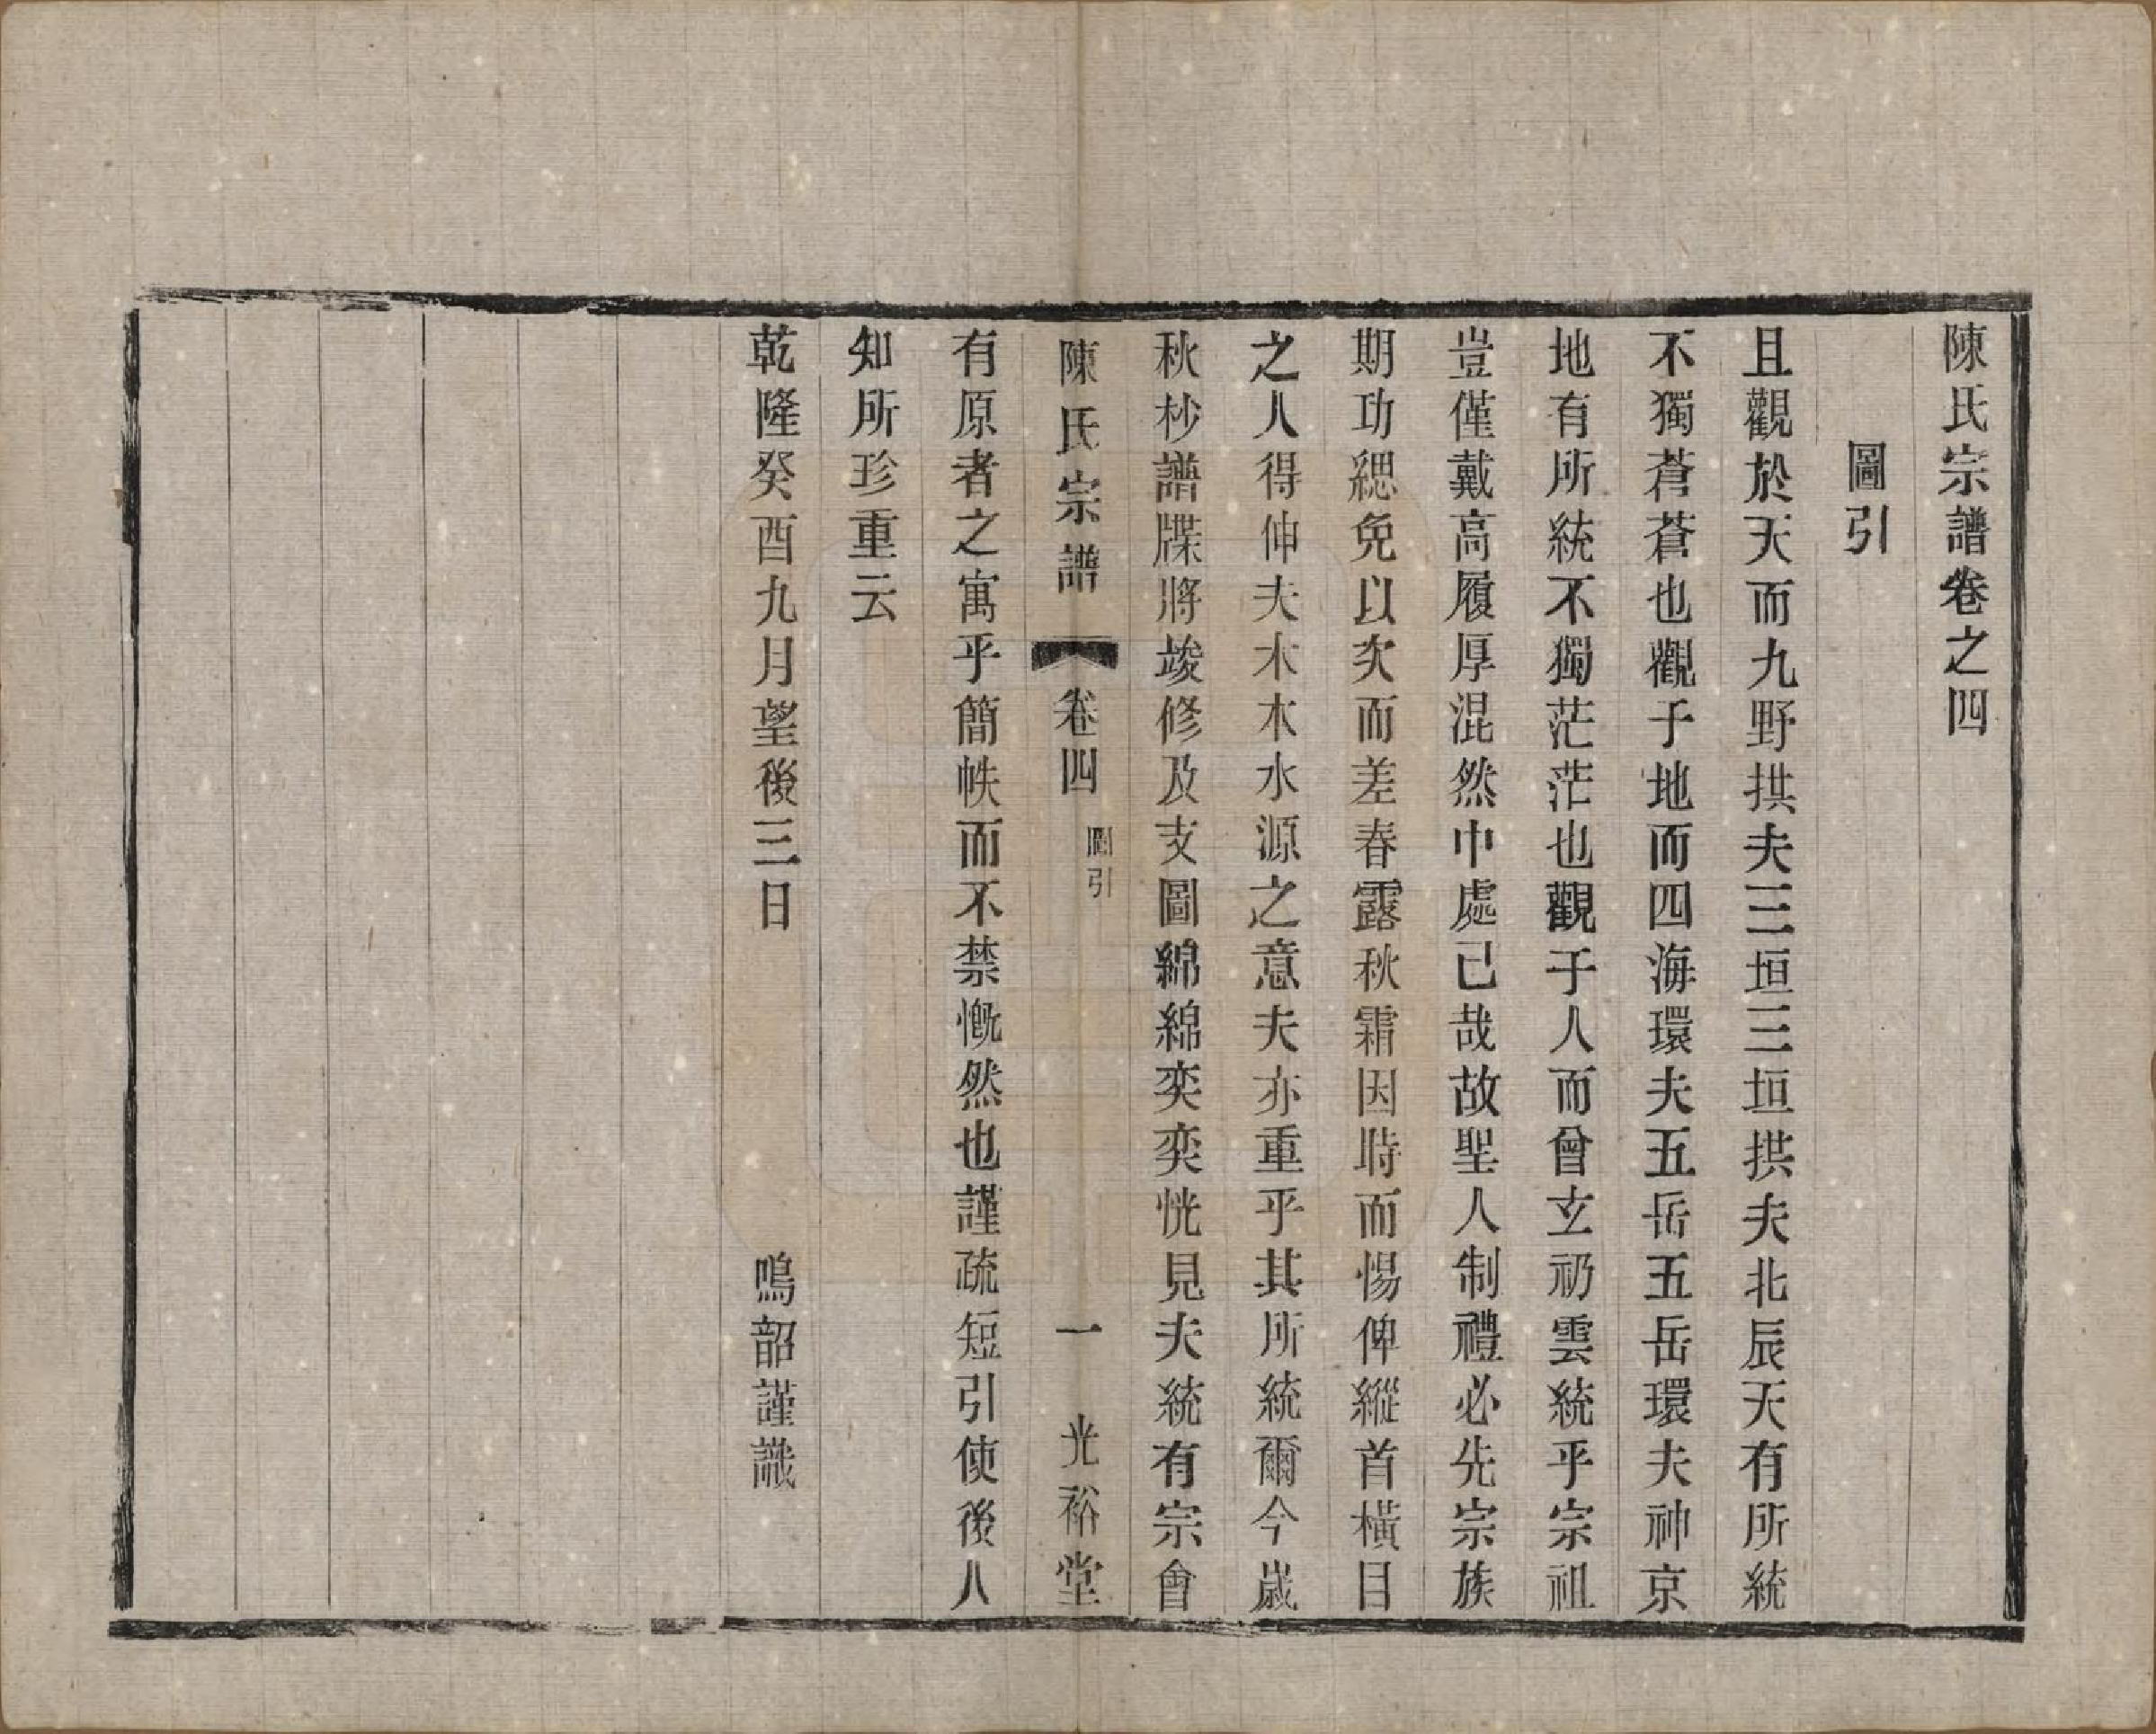 陳氏宗譜卷之四
圖引
且觀於天而九野拱夫三垣三垣拱夫北辰天有所統
不獨蒼蒼也觀于地而四海環夫五岳五岳環夫神京
地有所統不獨茫茫也觀于人而曾玄礽雲統乎宗祖
豈僅戴高履厚混然中處己哉故聖人制禮必先宗族
期功緦免以次而差春露秋霜因時而惕俾縱首橫目
之人得伸夫木木水源之意夫亦重乎其所統爾今歲
秋杪譜牒將竣修及支圖綿綿奕奕恍見夫統有宗會
陳氏宗譜 卷四 圖引 一 光裕堂
有原者之寓乎簡帙而不禁慨然也謹疏短引使後人
知所珍重云
乾隆癸酉九月望後三日 鳴韶謹識